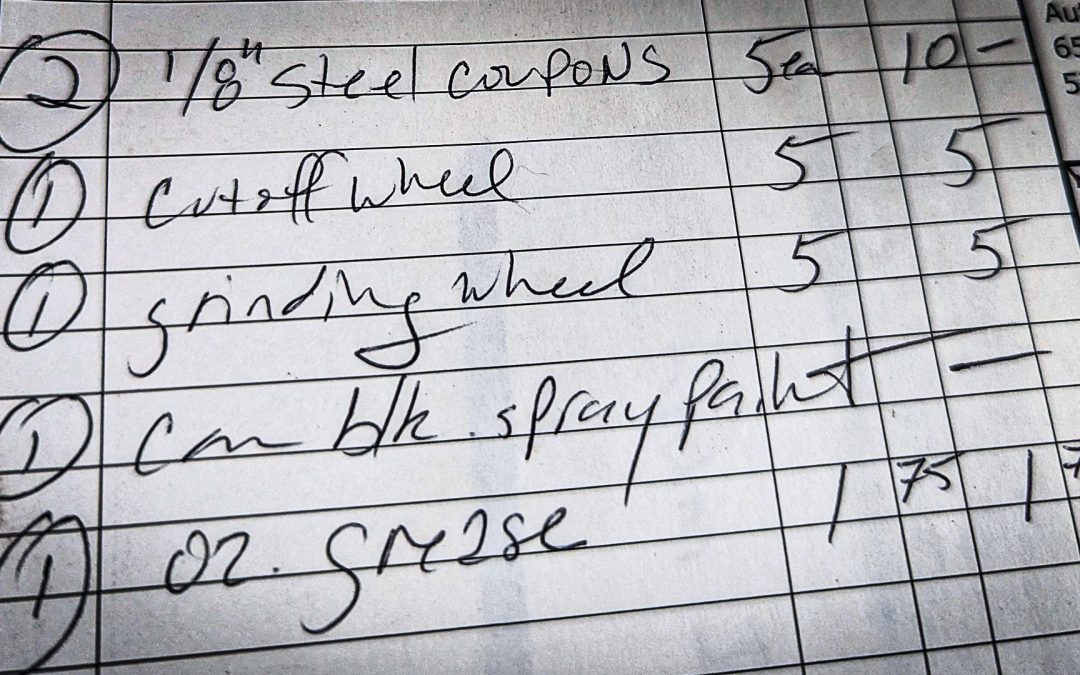 2 1/8" Steel coupons 5ea 10 —
1 cutoff wheel 5 5
1 grinding wheel 5 5
1 Can blk. spray paint —
1 oz. grease 1 75 1 7
Au
65
5